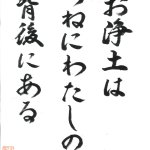 お浄土は
つねにわたしの
背後にある